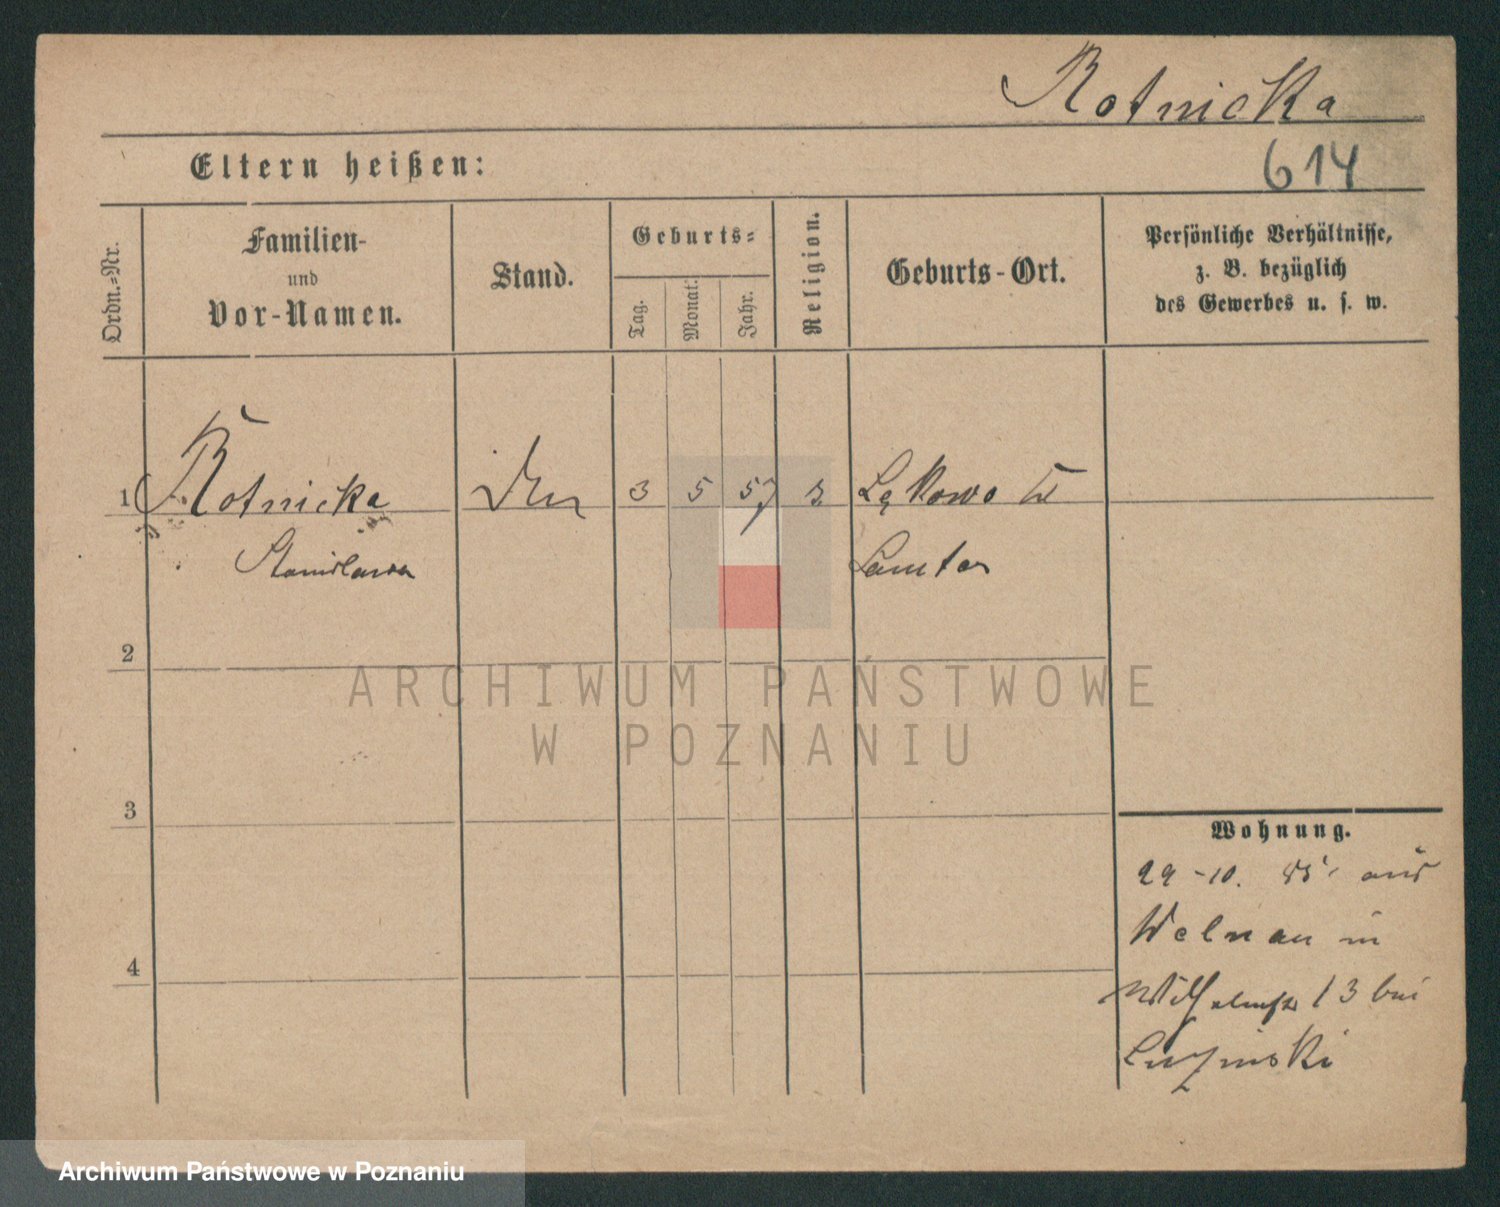 Rotnicka
Eltern heißen:
614
Ordn.=Nr.
Familien-
und
Vor-Namen.
Stand.
Geburts=
Tag.
Monat.
Jahr.
Religion.
Geburts-Ort.
Persönliche Verhältnisse,
z. B. bezüglich
des Gewerbes u. s. w.
1 Rotnicka 3 5 57 Lękowo
Stanislawa Samter
2
3
4
Wohnung.
29-10. aus
Welnau in
13 bei
ARCHIWUM PAŃSTWOWE
W POZNANIU
Archiwum Państwowe w Poznaniu